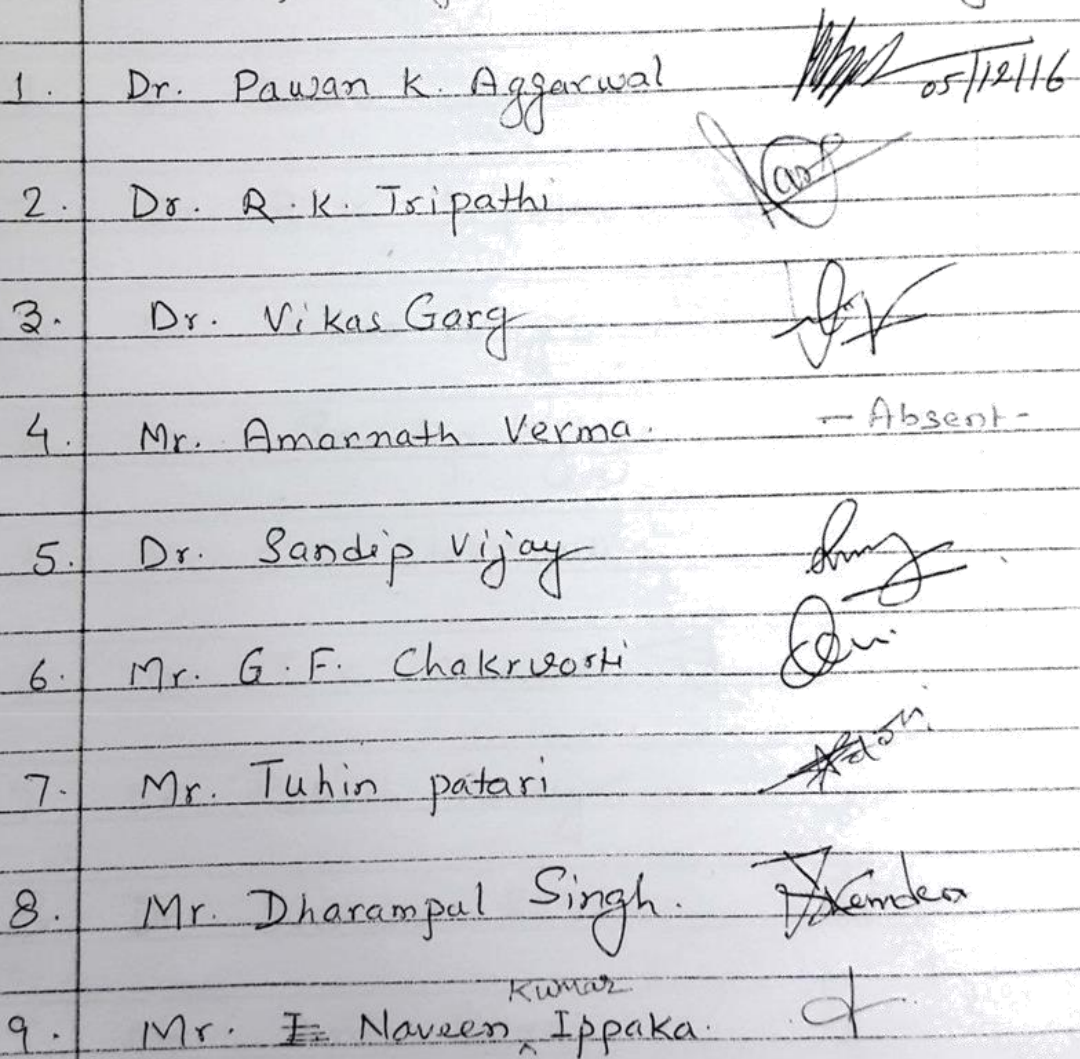 1. Dr. Pawan K. Aggarwal 05/12/16
2. Dr. R.K. Tripathi
3. Dr. Vikas Garg
4. Mr. Amarnath Verma. - Absent -
5. Dr. Sandip Vijay
6. Mr. G.F. Chakrvorti
7. Mr. Tuhin patari
8. Mr. Dharampal Singh.
9. Mr. Naveen Kumar Ippaka.